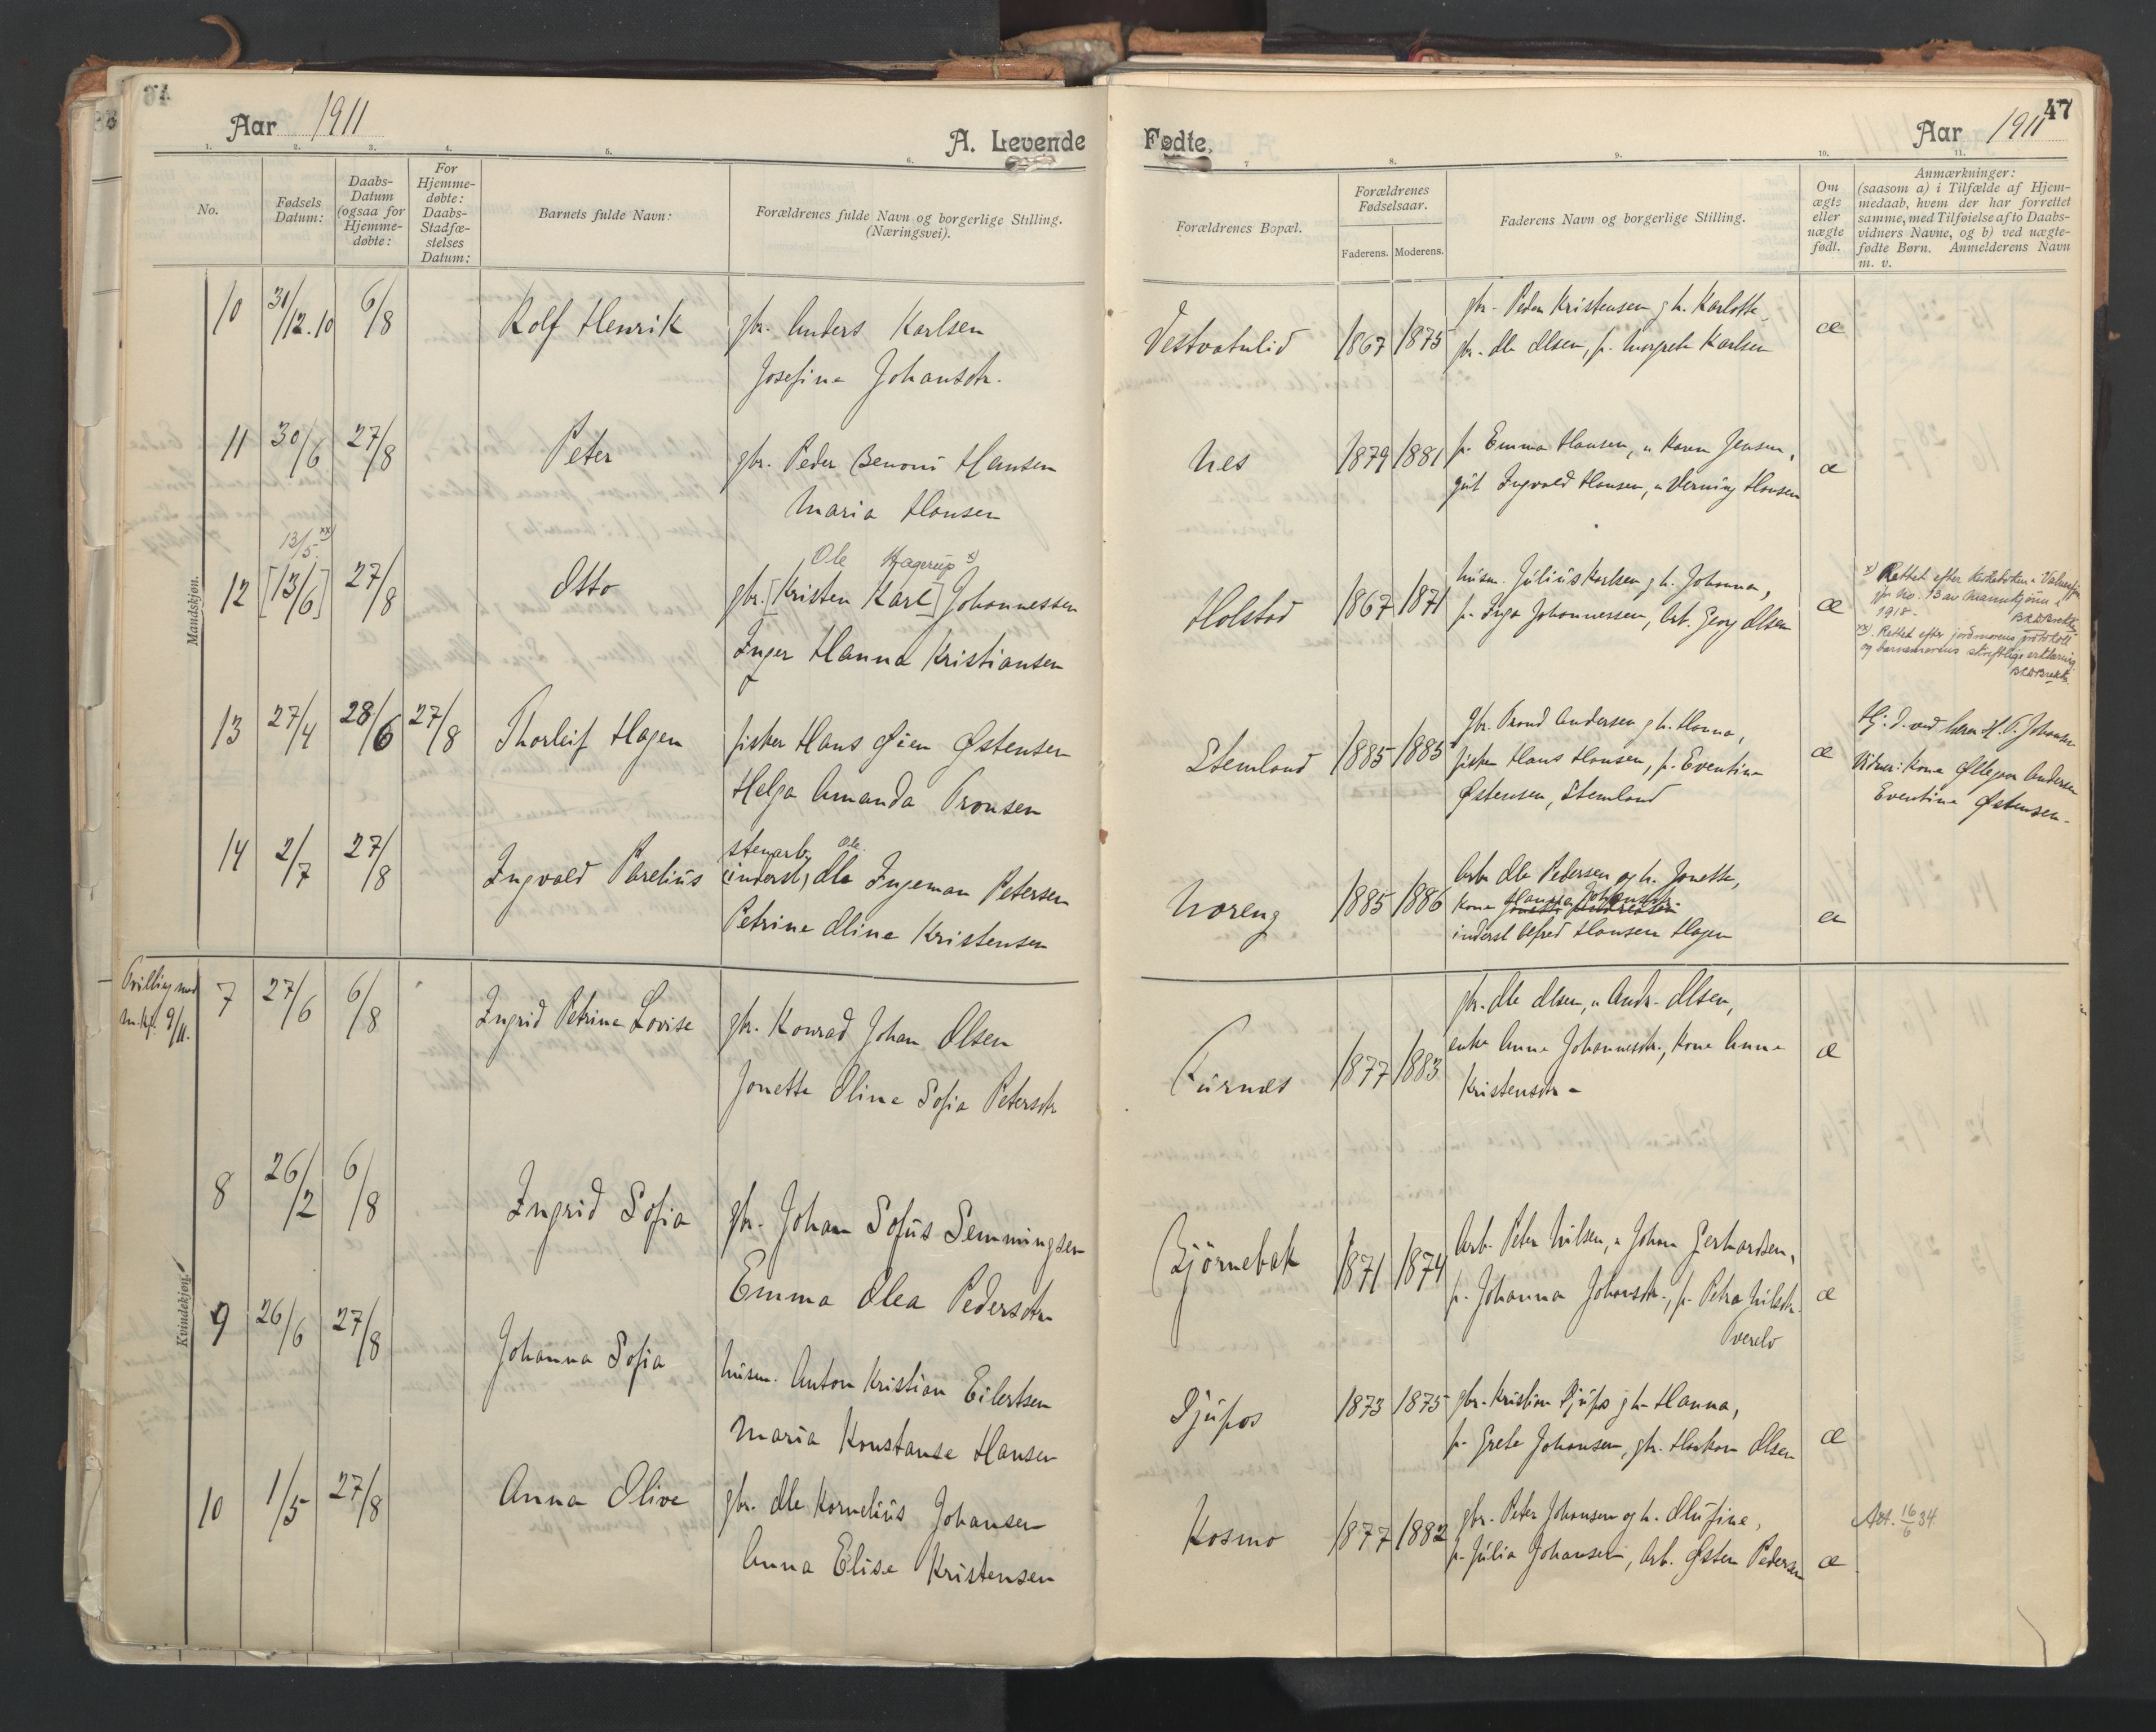 Aar 1911
A. Levende
Fødte,
Aar 1911
47
1. 2. 3. 4. 5. 6. 7 8. 9. 10. 11.
No.
Fødsels
Datum:
Daabs-
Datum
(ogsaa for
Hjemme-
døbte:
For
Hjemme-
døbte:
Daabs-
Stadfæ-
stelses
Datum:
Barnets fulde Navn:
Forældrenes fulde Navn og borgerlige Stilling.
(Næringsvei).
Forældrenes Bopæl.
Forældrenes
Fødselsaar.
Faderens. Moderens.
Faderens Navn og borgerlige Stilling.
Om
ægte
eller
uægte
født.
Anmærkninger:
(saasom a) i Tilfælde af Hjem-
medaab, hvem der har forrettet
samme, med Tilføielse af to Daabs-
vidners Navne, og b) ved uægte-
fødte Børn. Anmelderens Navn
m. v.
Mandskjøn.
10 31/12.10 6/8 Rolf Henrik gbr. Anders Karlsen
Josefine Johansdtr.
Vestvatnlid 1867 1875 gbr. Peder Kristensen g h. Karlotte,
gbr. Ole Olsen, p. Margrete Karlsen
æ
11 30/6 27/8 Peter gbr. Peder Benoni Hansen
Maria Hansen
Nes 1879 1881 p. Emma Hansen, " Karen Jensen,
gut Ingvald Hansen, " Henning Hansen
æ
13/5. xx)
12 [13/6] 27/8 Otto
Ole Hagerup x)
gbr. [Kristen Karl] Johannessen
Inger Hanna Kristiansen
Holstad 1867 1871 husm. Julius Karlsen g h. Johanna,
p. Inga Johannessen, Arb. Georg Olsen
æ
x) Rettet efter kirkeboken i Valnesfjord
jfr No. 13 av Mannkjønn i
1918.
xx). Rettet efter jordmorens protokoll
og barnemorens skriftlige erklæring.
13 27/4 28/6 27/8 Thorleif Hagen fisker Hans Øien Østensen
Helga Amanda Tronsen
Stemland 1885 1885 gbr. Trond Andersen g h. Hanna,
fisker Hans Hansen, p. Eventine
Østensen, Stemland
æ
Hj. d. ved lærer H. T. Johansen
Vidner: Kone Ellegva Andersen
Eventine Østensen.
14 2/7 27/8 Ingvald Parelius
stenarb. Ole.
(inderst) Ole Ingeman Petersen
Petrine Oline Kristensen
Noreng 1885 1886 Arb. Ole Pedersen og h. Jonette,
Kone Hanna Johansdtr.
inderst Alfred Hansen Hagen
æ
Tvilling med
m.kj. 9/11.
Kvindekjøn.
7 27/6 6/8 Ingrid Petrine Lovise gbr. Konrad Johan Olsen
Jonette Oline Sofie Petersdtr
Furnes 1877 1883 gbr. Ole Olsen, " Andr. Olsen,
enke Anne Johannesdtr., Kone Anne
Kristensdtr -
æ
8 26/2 6/8 Ingrid Sofia gbr. Johan Sofus Semmingsen
Emma Olea Pedersdtr
Bjørnebak 1871 1874 Arb. Peter Nilsen, " Johan Gerhardsen,
p. Johanna Johansdtr., p. Petra Nilsdtr.
Tverelv
æ
9 26/6 27/8 Johanna Sofia husm. Anton Kristian Eilertsen
Maria Konstanse Hansen
Djupos 1873 1875 gbr. Kristian Djupos g h Hanna,
p. Grete Johansen, gbr. Haakon Olsen
æ
10 1/5 27/8 Anna Olive gbr. Ole Kornelius Johansen
Anna Elise Kristensen
Kosmo 1877 1882 gbr. Peter Johansen og h. Olufine,
p. Julia Johansen, Arb. Østen Pedersen
æ
Att. 16/6 34